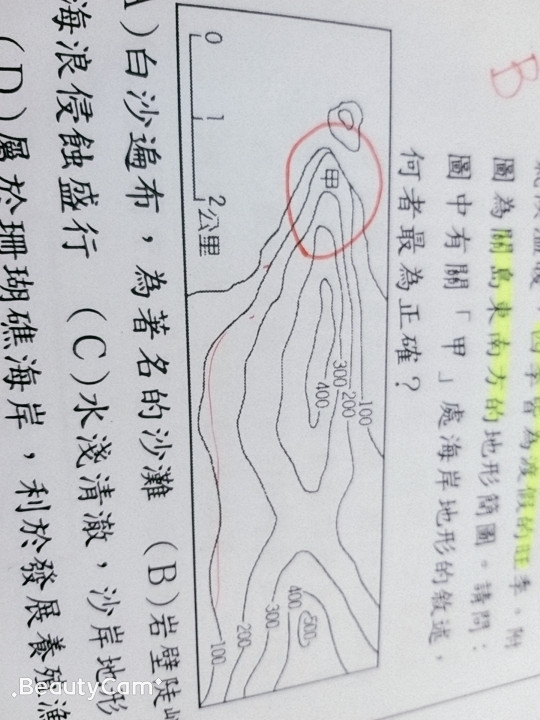 B
氣候溫暖，四季皆為渡假的旺季。附
圖為關島東南方的地形簡圖。請問：
圖中有關「甲」處海岸地形的敘述，
何者最為正確？
甲
100
200
300
400
100
200
300
400
500
0 1 2公里
A)白沙遍布，為著名的沙灘 (B)岩壁陡
海浪侵蝕盛行 (C)水淺清澈，沙岸地形
(D)屬於珊瑚礁海岸，利於發展養殖漁
BeautyCam